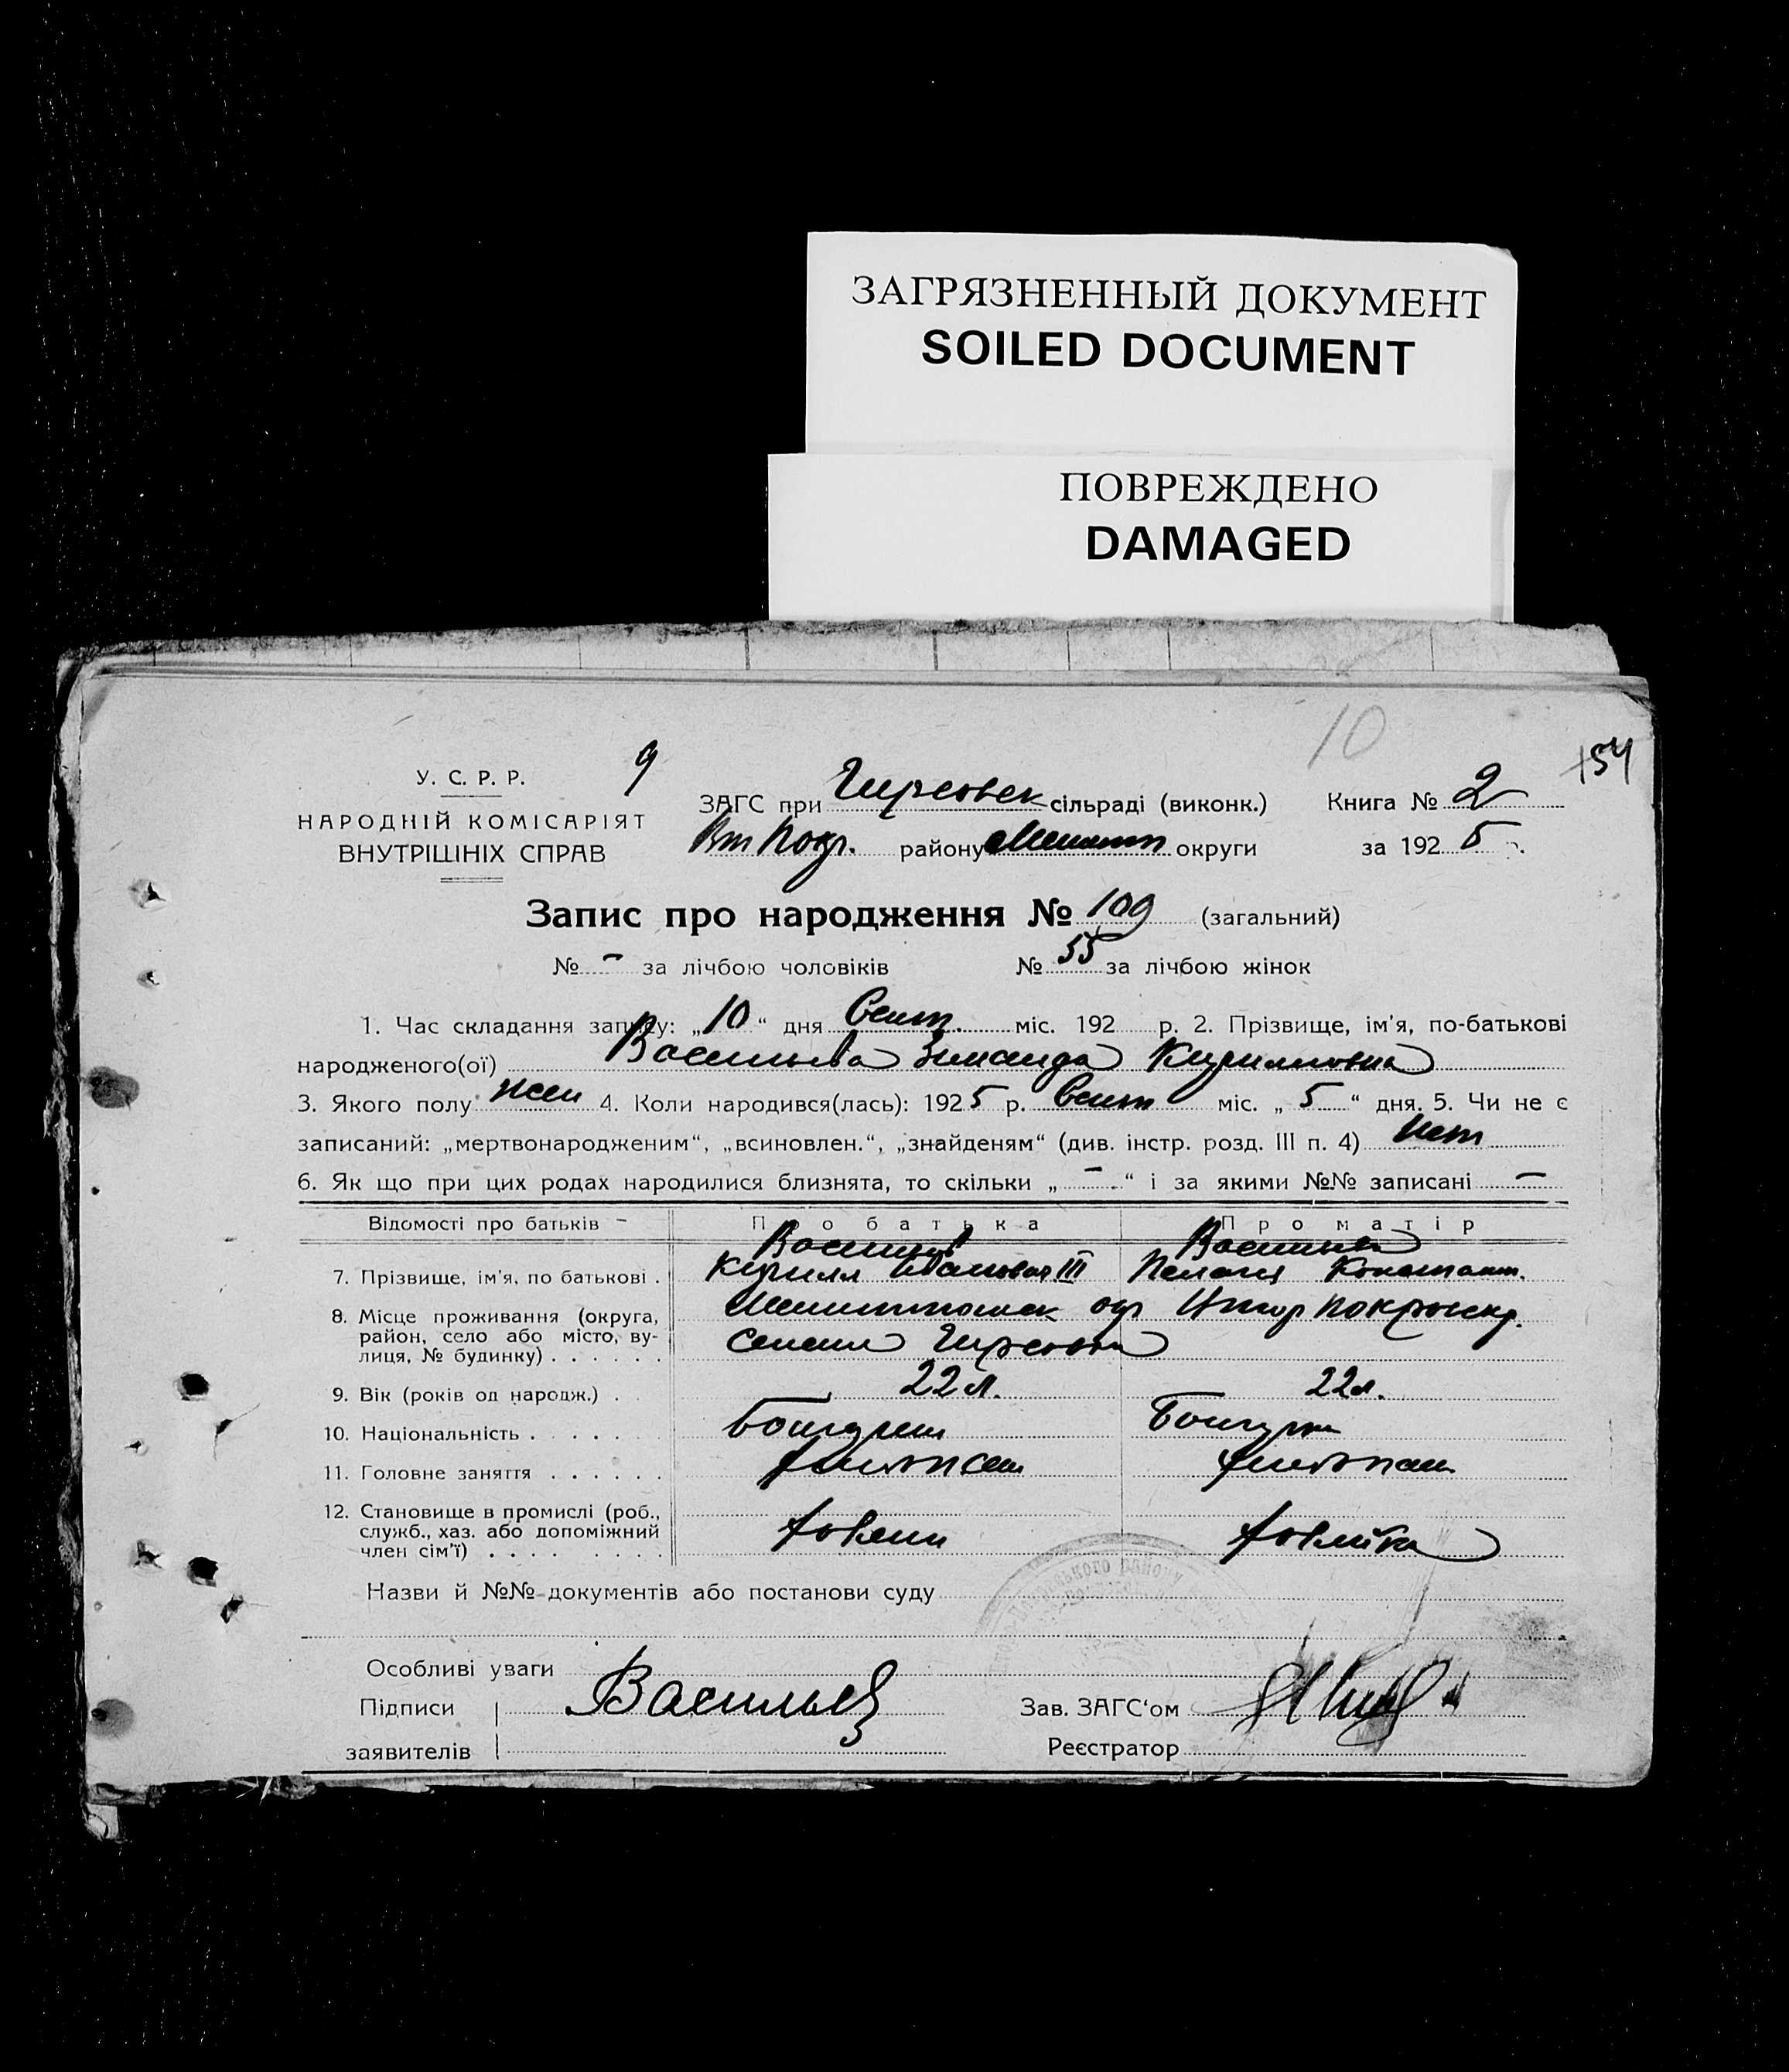 ЗАГРЯЗНЕННЫЙ ДОКУМЕНТ
SOILED DOCUMENT
ПОВРЕЖДЕНО
DAMAGED
10
154
9
У. С. Р. Р.
НАРОДНІЙ КОМІСАРІЯТ
ВНУТРІШНІХ СПРАВ
ЗАГС при Гирсовск сільраді (виконк.) Книга № 2
Вт Покр. району округи за 1925
Запис про народження № 109 (загальний)
№ - за лічбою чоловіків № 55 за лічбою жінок
1. Час складання запису: „10“ дня Сент. міс. 192 р. 2. Прізвище, ім'я, по-батькові
народженого(ої) Васильева Зинаида Кирилловна
3. Якого полу жен 4. Коли народився(лась): 1925 р. Сент міс. „5“ дня. 5. Чи не є
записаний: „мертвонародженим“, „всиновлен.“, „знайденям“ (див. інстр. розд. III п. 4) нет
6. Як що при цих родах народилися близнята, то скільки „-“ і за якими №№ записані -
Відомості про батьків - Про батька Про матір
Васильев Васильева
7. Прізвище, ім'я, по батькові . Кирилл Иванович III Пелагея Константин.
8. Місце проживання (округа,
район, село або місто, ву-
лиця, № будинку) . . . . . . селении Гирсовка
9. Вік (років од народж.) . 22 л. 22 л.
10. Національність . . . . .
11. Головне заняття . . . . . . хлебопаш хлебопаш
12. Становище в промислі (роб.,
служб., хаз. або допоміжний
член сім'ї) . . . . . . . . хозяин хозяйка
Назви й №№ документів або постанови суду
Особливі уваги
Підписи Васильев Зав. ЗАГС'ом
заявителів Реєстратор